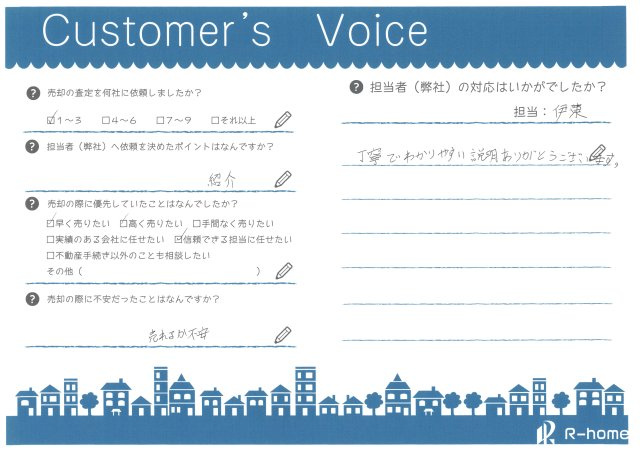 Customer's Voice
? 売却の査定を何社に依頼しましたか?
☑1～3 □4～6 □7～9 □それ以上
? 担当者（弊社）へ依頼を決めたポイントはなんですか?
紹介
? 売却の際に優先していたことはなんでしたか?
☑早く売りたい ☑高く売りたい □手間なく売りたい
□実績のある会社に任せたい ☑信頼できる担当に任せたい
□不動産手続き以外のことも相談したい
その他（ ）
? 売却の際に不安だったことはなんですか?
売れるか不安
? 担当者（弊社）の対応はいかがでしたか?
担当：伊藤
丁寧でわかりやすい説明ありがとうございます。
R-home